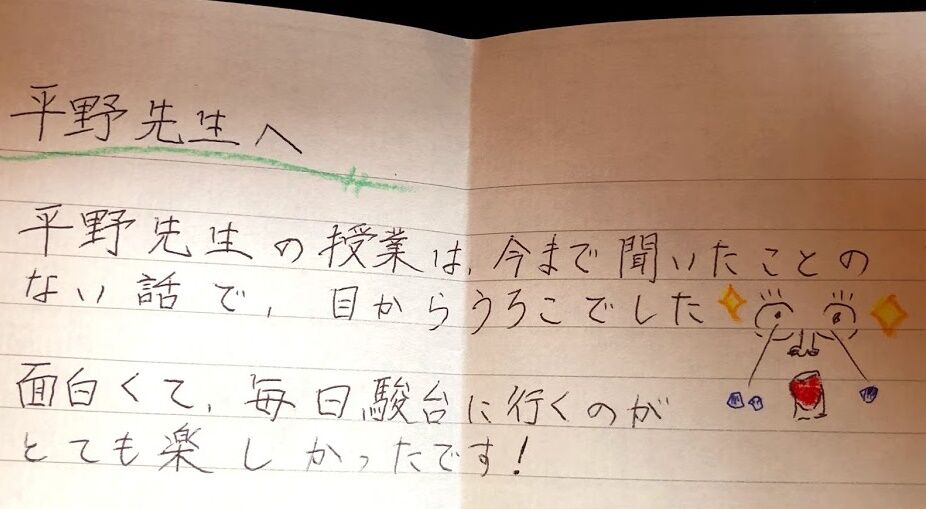 平野先生へ
平野先生の授業は、今まで聞いたことの
ない話で、目からうろこでした
面白くて、毎日駿台に行くのが
とても楽しかったです!